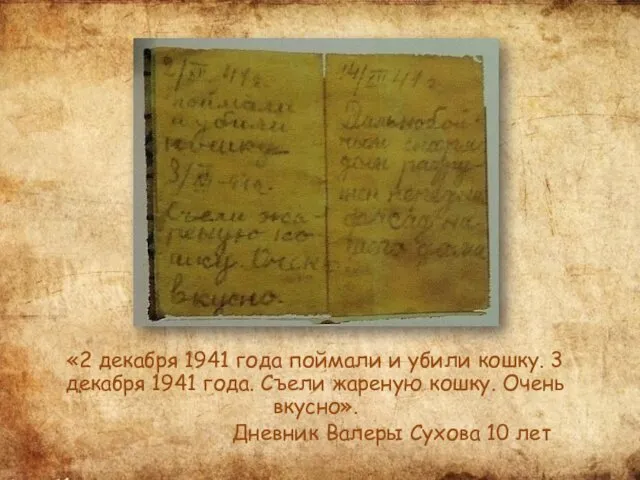 2/XII 41 г
поймали
и убили
кошку
3/XII-41г.
Съели жа-
реную ко-
шку. Очень
вкусно.
14/XII 41 г
Дальнобой-
ным снаря-
дом разру-
шен
фасад на-
шего дома
«2 декабря 1941 года поймали и убили кошку. 3
декабря 1941 года. Съели жареную кошку. Очень
вкусно».
Дневник Валеры Сухова 10 лет